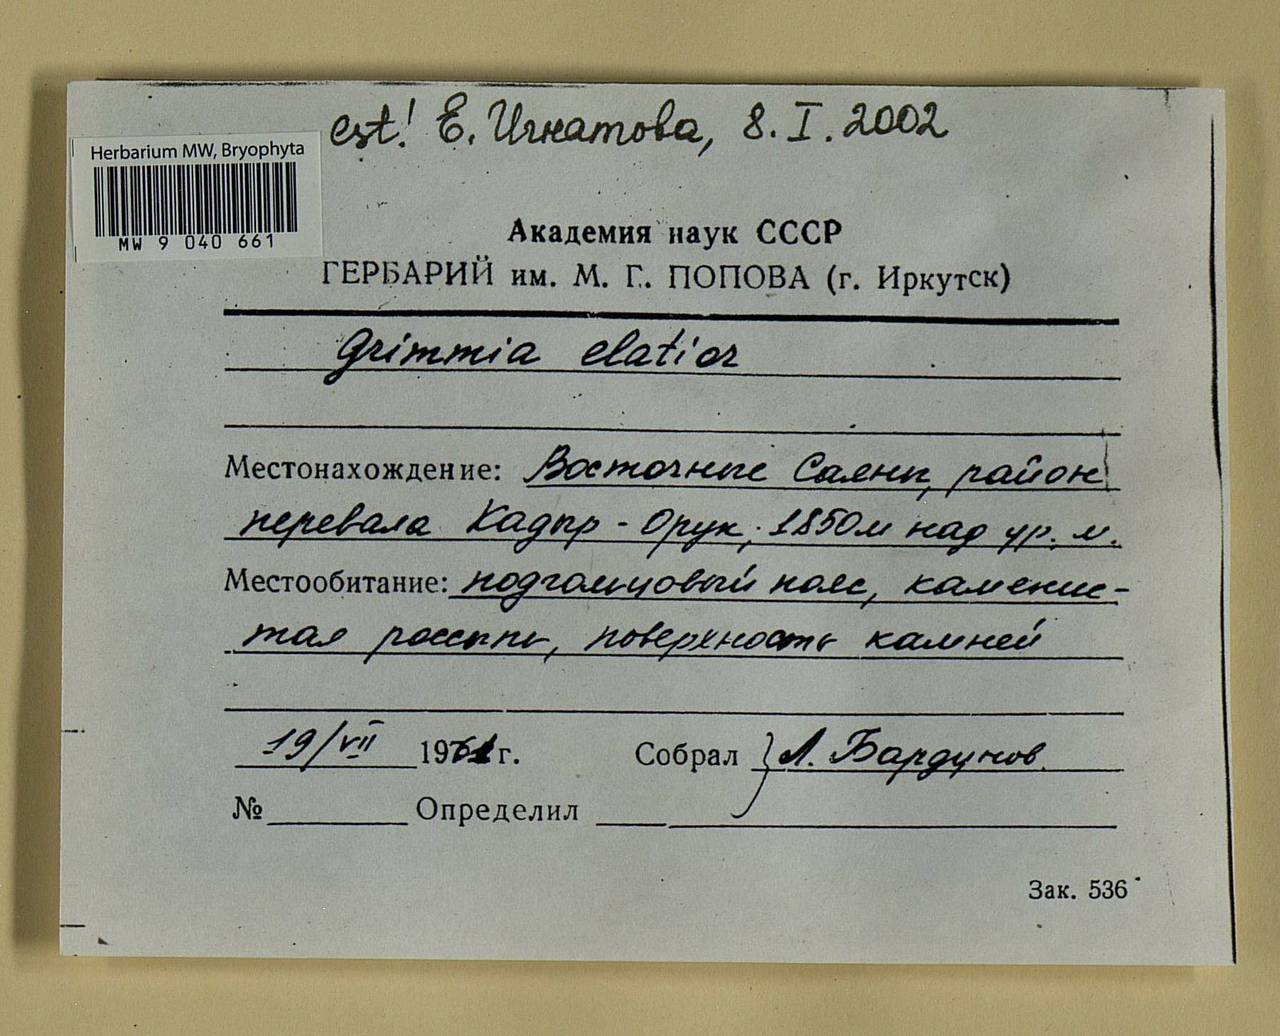 est! Е. Игнатова, 8. I. 2002
Herbarium MW, Bryophyta
MW 9 040 661
Академия наук СССР
ГЕРБАРИЙ им. М. Г. ПОПОВА (г. Иркутск)
Grimmia elatior
Местонахождение: Восточные Саяны, район
перевала Кадыр - Орук, 1850м над ур. м.
Местообитание: подгольцовый пояс, каменис-
тая россыпь, поверхность камней
19/VII 1961 г. Собрал Л. Бардунов
№ Определил
Зак. 536